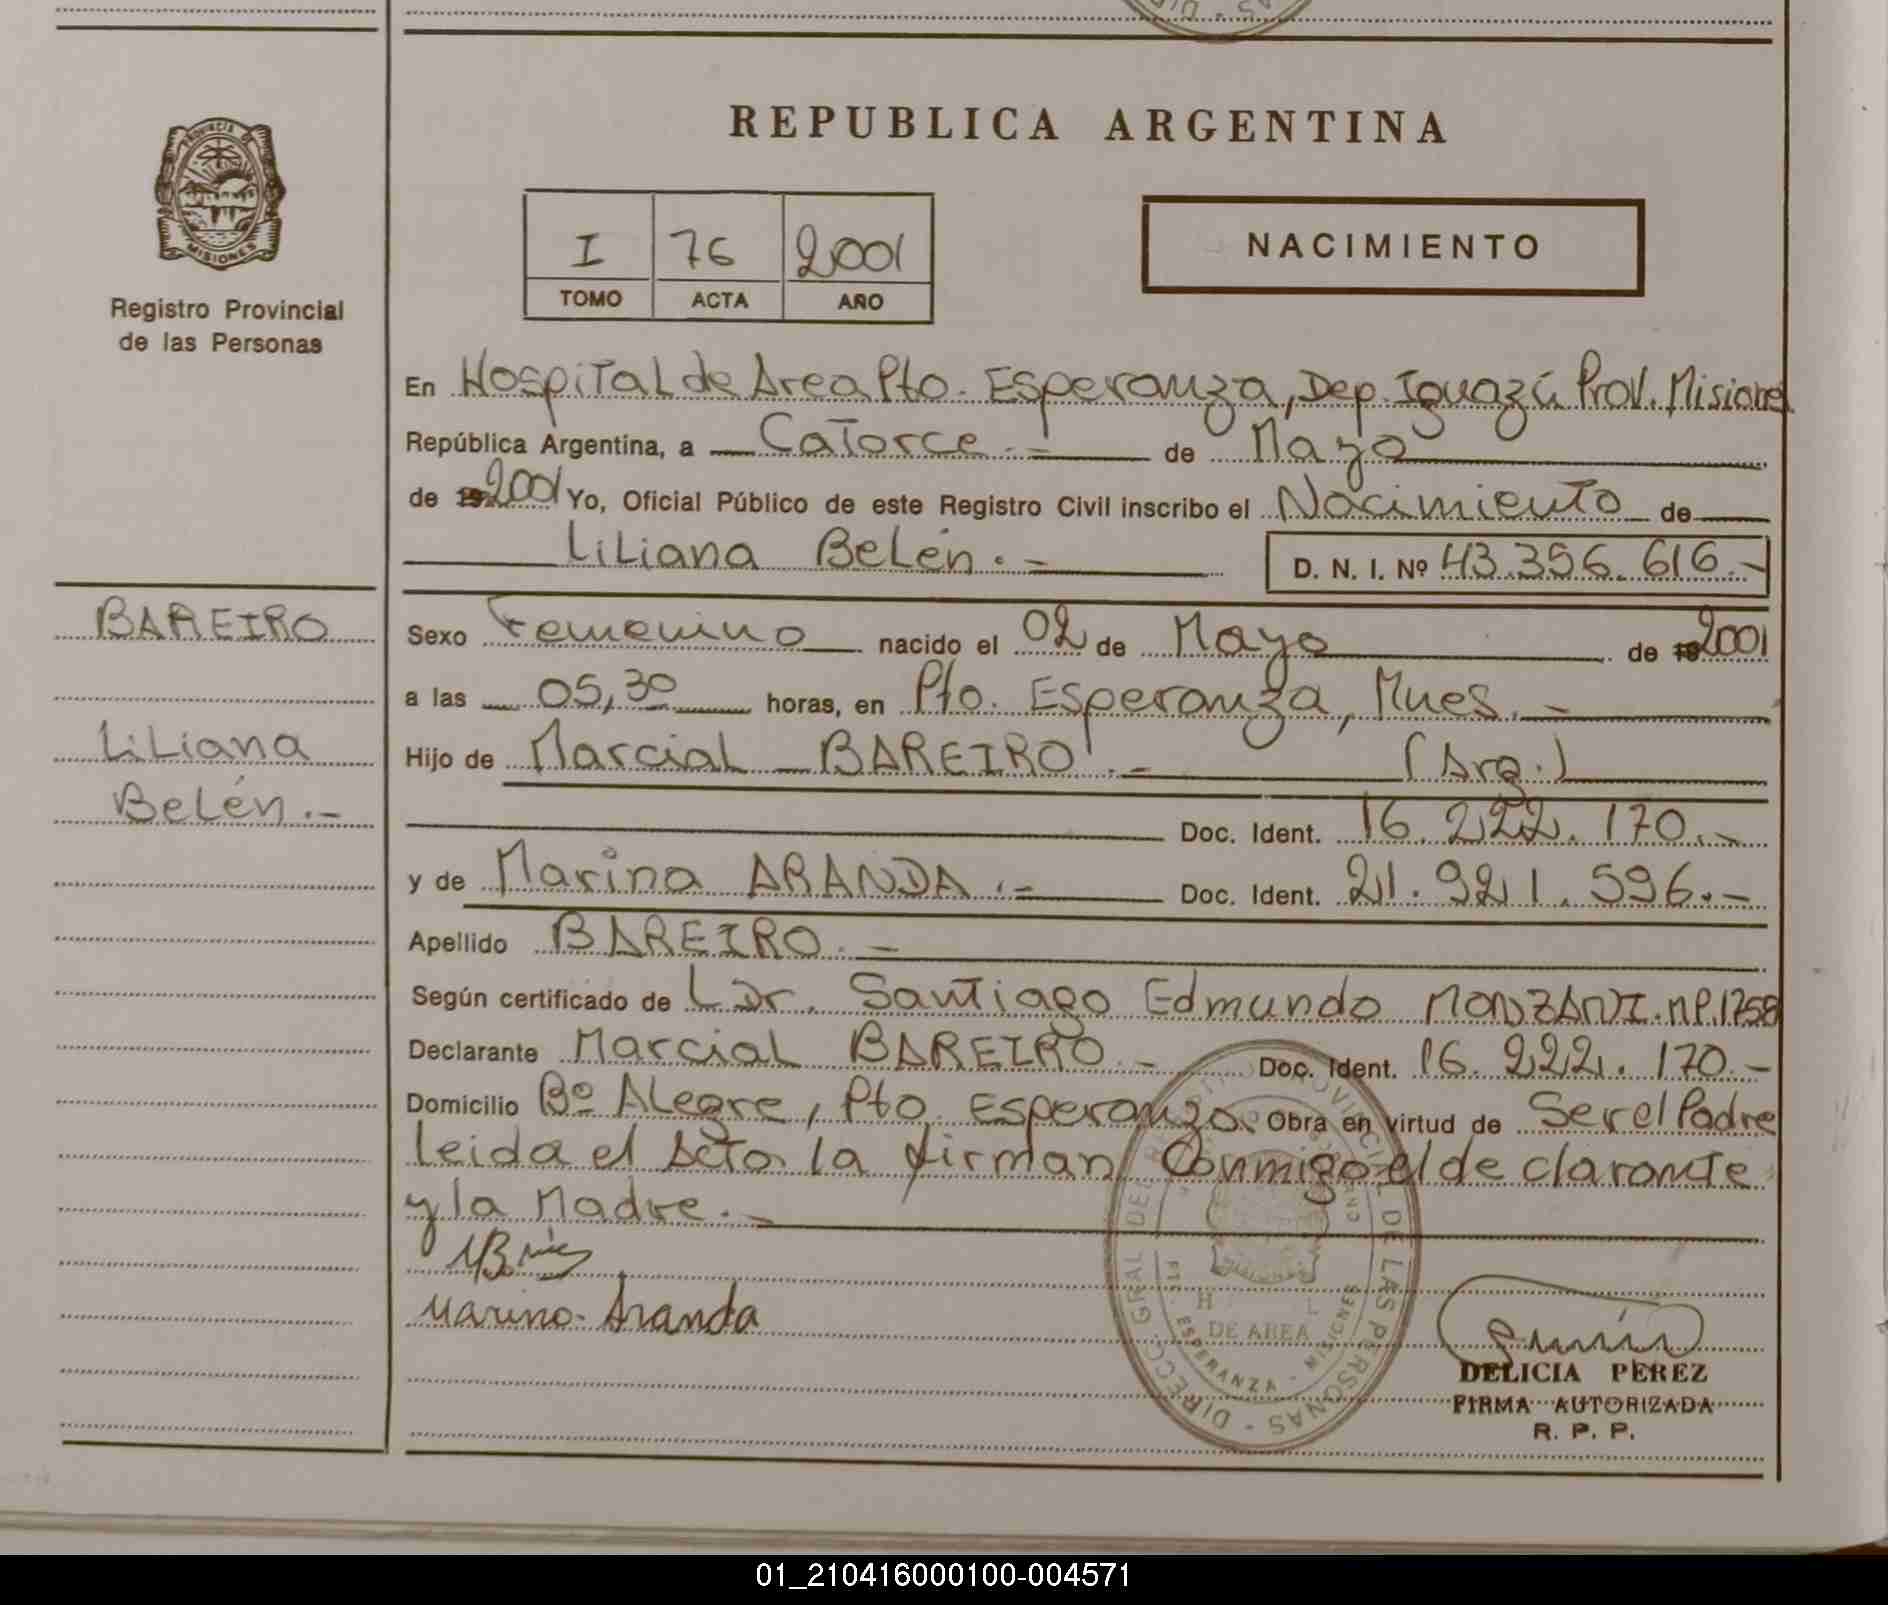 REPUBLICA ARGENTINA
PROVINCIA DE
MISIONES
Registro Provincial
de las Personas
I 76 2001
TOMO ACTA AÑO
NACIMIENTO
En Hospital de Area Pto. Esperanza, Dep. Iguazú Prov. Misiones
República Argentina, a Catorce.- de Mayo
de 192001 Yo, Oficial Público de este Registro Civil inscribo el Nacimiento de
Liliana Belén.- D. N. I. Nº 43.356.616.-
BAREIRO
Liliana
Belén.-
Sexo Femenino nacido el 02 de Mayo de 192001
a las 05,30 horas, en Pto. Esperanza, Mnes.-
Hijo de Marcial BAREIRO.- (Arg.)
Doc. Ident. 16.222.170.-
y de Marina ARANDA.- Doc. Ident. 21.921.596.-
Apellido BAREIRO.-
Según certificado de Dr. Santiago Edmundo MONZANI. M.P. 1758
Declarante Marcial BAREIRO.- Doc. Ident. 16.222.170.-
Domicilio Bº Alegre, Pto. Esperanza. Obra en virtud de Ser el Padre
leida el Acta la firman Conmigo el declarante
y la Madre.-
Marina Aranda
DIRECC. GRAL DEL REGISTRO PROVINCIAL DE LAS PERSONAS
DE AREA
ESPERANZA - MISIONES
DELICIA PEREZ
FIRMA AUTORIZADA
R. P. P.
01_210416000100-004571